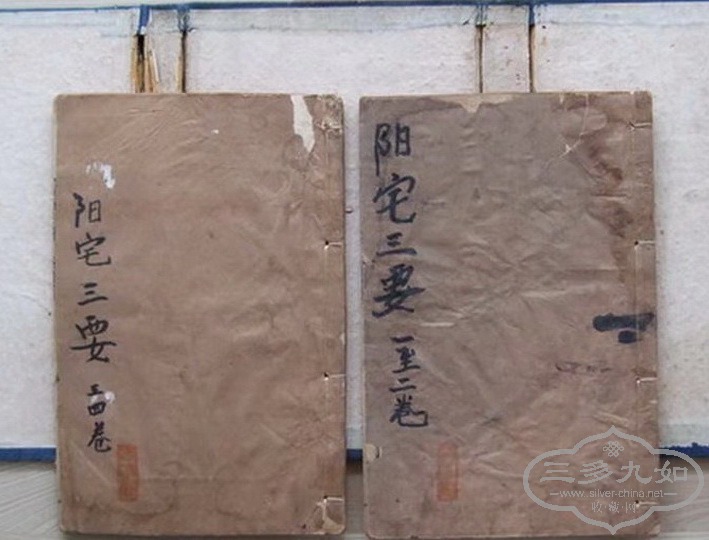 阳宅三要 三四卷
阳宅三要 一至二卷
三多九如
www.silver-china.net
收藏网